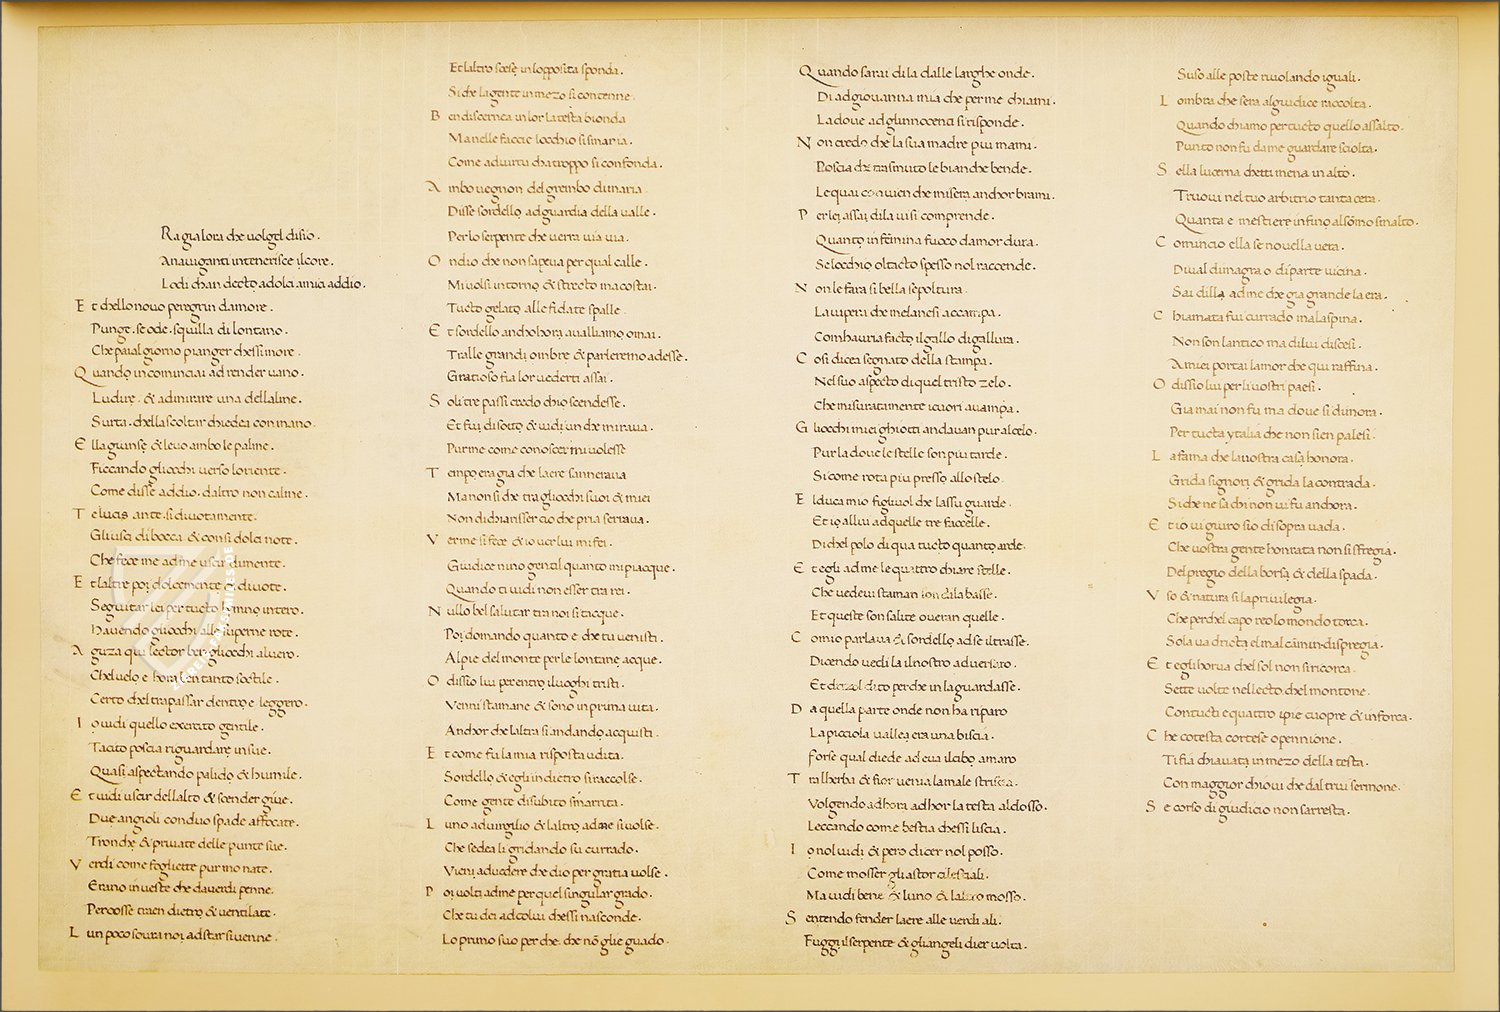 Ra gia lora che volgel disio.
Anaviganti intenerisce ilcore.
Lodi chan decto adolci amici addio.
Et chello novo peregrin damore.
Punge. se ode. squilla di lontano.
Che paia lgiorno pianger chessi more.
Quando incominciai ad render vano.
Ludire. & admirare una dellalme.
Surta. chella scoltar chiedea con mano.
Ella giunse & levo ambo le palme.
Ficcando gliocchi verso loriente.
Come disse addio. daltro non calme.
Te lucis ante. si divotamente.
Gliusci di bocca & con si dolci note.
Che fece me ad me uscir dimente.
Et laltre poi dolcemente & divote.
Seguitar lei per tucto lymno intero.
Havendo gliocchi alle superne rote.
Aguza qui lector ben gliocchi alvero.
Chelvelo e hora ben tanto sottile.
Certo chel trapassar dentro e leggero.
Io vidi quello exercito gentile.
Tacito poscia riguardare in sue.
Quasi aspectando palido & humile.
Et vidi uscir dellalto & scender giue.
Due angioli con duo spade affocate.
Tronche & private delle punte sue.
Verdi come fogliette pur mo nate.
Erano in veste che da verdi penne.
Percosse traen dietro & ventilate.
Lun poco sovra noi ad star si venne.
Et laltro scese in lopposita sponda.
Si che la gente in mezo si contenne.
Ben discernea in lor la testa bionda
Ma nelle faccie locchio si smaria.
Come advirtu cha troppo si confonda.
Ambo vegnon del grembo dimaria
Disse sordello ad guardia della valle.
Per lo serpente che verra via via.
Ondio che non sapeva per qual calle.
Mi volsi intorno & strecto macostai.
Tucto gelato alle fidate spalle.
Et sordello anchohora avalliamo omai.
Tralle grandi ombre & parleremo adesse.
Gratioso fia lor vederti assai.
Soli tre passi credo chio scendesse.
Et fui disotto & vidi un che mirava.
Pur me come conoscer mi volesse
Tempo era gia che laere sannerava
Ma non si che tra gliocchi suoi & miei
Non dichiarisser cio che pria serrava.
Ver me si fece & io ver lui mi fei.
Giudice nino gentil quanto mi piacque.
Quando ti vidi non esser tra rei.
Nullo bel salutar tra noi si tacque.
Poi domando quanto e che tu venisti.
Alpie del monte per le lontane acque.
O dissio lui per entro iluoghi tristi.
Venni stamane & sono in prima vita.
Anchor che laltra si andando acquisti.
Et come fu la mia risposta udita.
Sordello & egli indietro si raccolse.
Come gente di subito smarrita.
Luno advirgilio & laltro ad me si volse.
Che sedea li gridando su currado.
Vieni advedere che dio per gratia volse.
Poi volti ad me per quel singular grado.
Che tu dei ad colui chessi nasconde.
Lo primo suo per che. che nō glie guado.
Quando sarai di la dalle larghe onde.
Di ad giovanna mia che per me chiami.
La dove ad glinnocenti si risponde.
Non credo che la sua madre piu mami.
Poscia che trasmuto le bianche bende.
Le quai convien che misera anchor brami.
Per lei assai dila visi comprende.
Quanto in femina fuoco damor dura.
Se locchio oltacto spesso nol raccende.
Non le fara si bella sepoltura.
La vipera che melanesi accampa.
Com havria facto il gallo di gallura.
Cosi dicea segnato della stampa.
Nel suo aspecto di quel tristo zelo.
Che misuratamente icuori avampa.
Gliocchi miei ghiotti andavan pur alcelo.
Pur la dove le stelle son piu tarde.
Si come rota piu presso allo stelo.
Elduca mio figliuol che lassu guarde.
Et io allui ad quelle tre faccelle.
Di chel polo di qua tucto quanto arde.
Et egli ad me le quattro chiare stelle.
Che vedevi staman son dila basse.
Et queste son salite overan quelle.
Comio parlava & sordello ad se iltrasse.
Dicendo vedi la ilnostro adversaro.
Et drizol dito perche in la guardasse.
Da quella parte onde non ha riparo
La picciola vallea era una biscia.
Forse qual diede ad eva ilcibo amaro
Tra lherba & fior venia lamale striscia.
Volgendo adhora adhor la testa aldosso.
Leccando come bestia chessi liscia.
Io nol vidi & pero dicer nol posso.
Come mosser gli astor celestiali.
Ma vidi bene & luno & laltro mosso.
Sentendo fender laere alle verdi ali.
Fuggi ilserpente & gliangeli dier volta.
Suso alle poste rivolando iguali.
Lombra che sera algiudice raccolta.
Quando chiamo per tucto quello assalto.
Punto non fu da me guardare sciolta.
Sella lucerna chetti mena in alto.
Truovi nel tuo arbitrio tanta cera.
Quanta e mestiere infino alsōmo smalto.
Comincio ella se novella vera.
Di val dimagra o di parte vicina.
Sai dilla ad me che gia grande la era.
Chiamato fui currado malaspina.
Non son lantico ma di lui discesi.
A miei portai lamor che qui raffina.
O dissio lui per li vostri paesi.
Gia mai non fu ma dove si dimora.
Per tucta ytalia che non sien palesi.
La fama che la vostra casa honora.
Grida signori & grida la contrada.
Si che ne sa chi non vi fu anchora.
Et io vi giuro sio di sopra vada.
Che vostra gente honrata non si sfregia.
Del pregio della borsa & della spada.
Uso & natura si la privilegia.
Che perchel capo reo lo mondo torca.
Sola va dricta el mal cāmin dispregia.
Et egli hor va chel sol non si ricorca.
Sette volte nel lecto chel montone.
Con tucti e quattro ipie cuopre & inforca.
Che cotesta cortese opennione.
Ti fia chiavata in mezo della testa.
Con maggior chiovi che daltrui sermone.
Se corso di giudicio non sarresta.